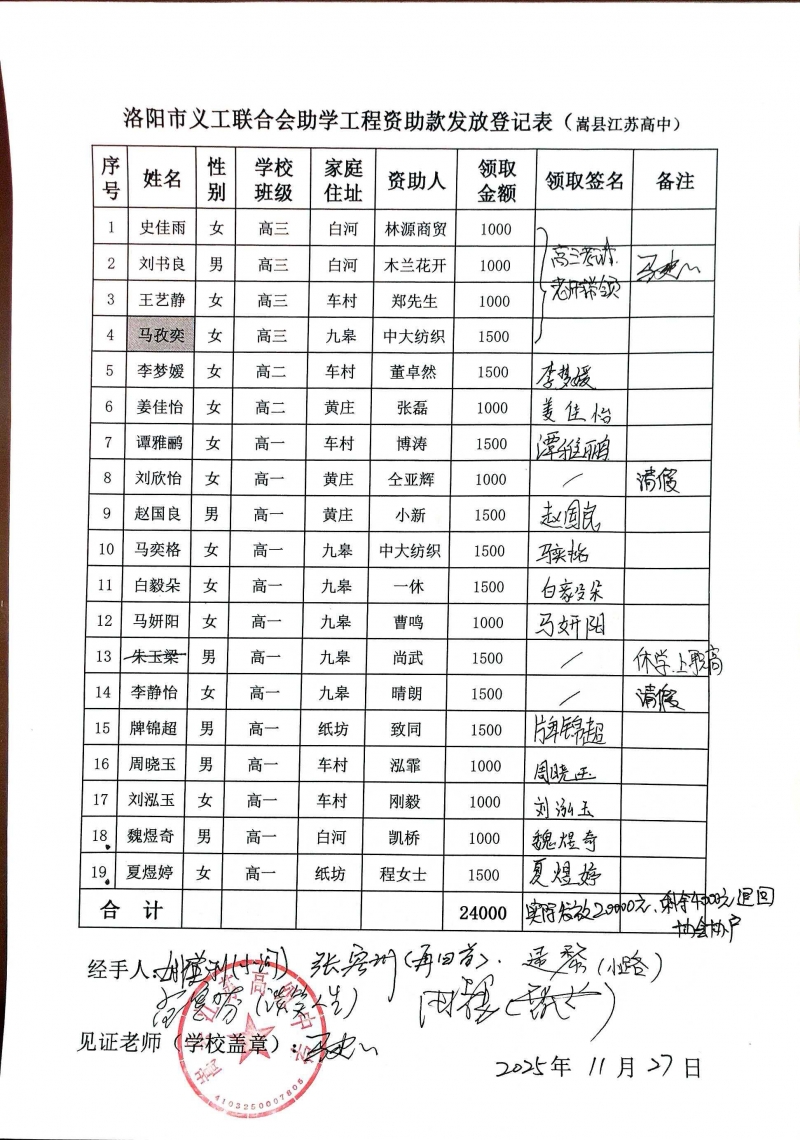 洛阳市义工联合会助学工程资助款发放登记表（嵩县江苏高中）
序号 姓名 性别 学校班级 家庭住址 资助人 领取金额 领取签名 备注
1 史佳雨 女 高三 白河 林源商贸 1000
2 刘书良 男 高三 白河 木兰花开 1000 高三考试
3 王艺静 女 高三 车村 郑先生 1000 老师带领
4 马孜奕 女 高三 九皋 中大纺织 1500
5 李梦媛 女 高二 车村 董卓然 1500 李梦媛
6 姜佳怡 女 高二 黄庄 张磊 1000 姜佳怡
7 谭雅鹂 女 高一 车村 博涛 1500 谭雅鹂
8 刘欣怡 女 高一 黄庄 仝亚辉 1000 / 请假
9 赵国良 男 高一 黄庄 小新 1500 赵国良
10 马奕格 女 高一 九皋 中大纺织 1500 马奕格
11 白毅朵 女 高一 九皋 一休 1500 白毅朵
12 马妍阳 女 高一 九皋 曹鸣 1000 马妍阳
13 朱玉梁 男 高一 九皋 尚武 1500 / 休学.上职高
14 李静怡 女 高一 九皋 晴朗 1500 / 请假
15 牌锦超 男 高一 纸坊 致同 1500 牌锦超
16 周晓玉 男 高一 车村 泓霏 1000 周晓玉
17 刘泓玉 女 高一 车村 刚毅 1000 刘泓玉
18 魏煜奇 男 高一 白河 凯桥 1000 魏煜奇
19 夏煜婷 女 高一 纸坊 程女士 1500 夏煜婷
合计 24000 实际发放20000元、剩余4000元退回
协会协户
经手人： (小河) (再回首). (小路)
见证老师（学校盖章）：
4103250007805
2025年11月27日